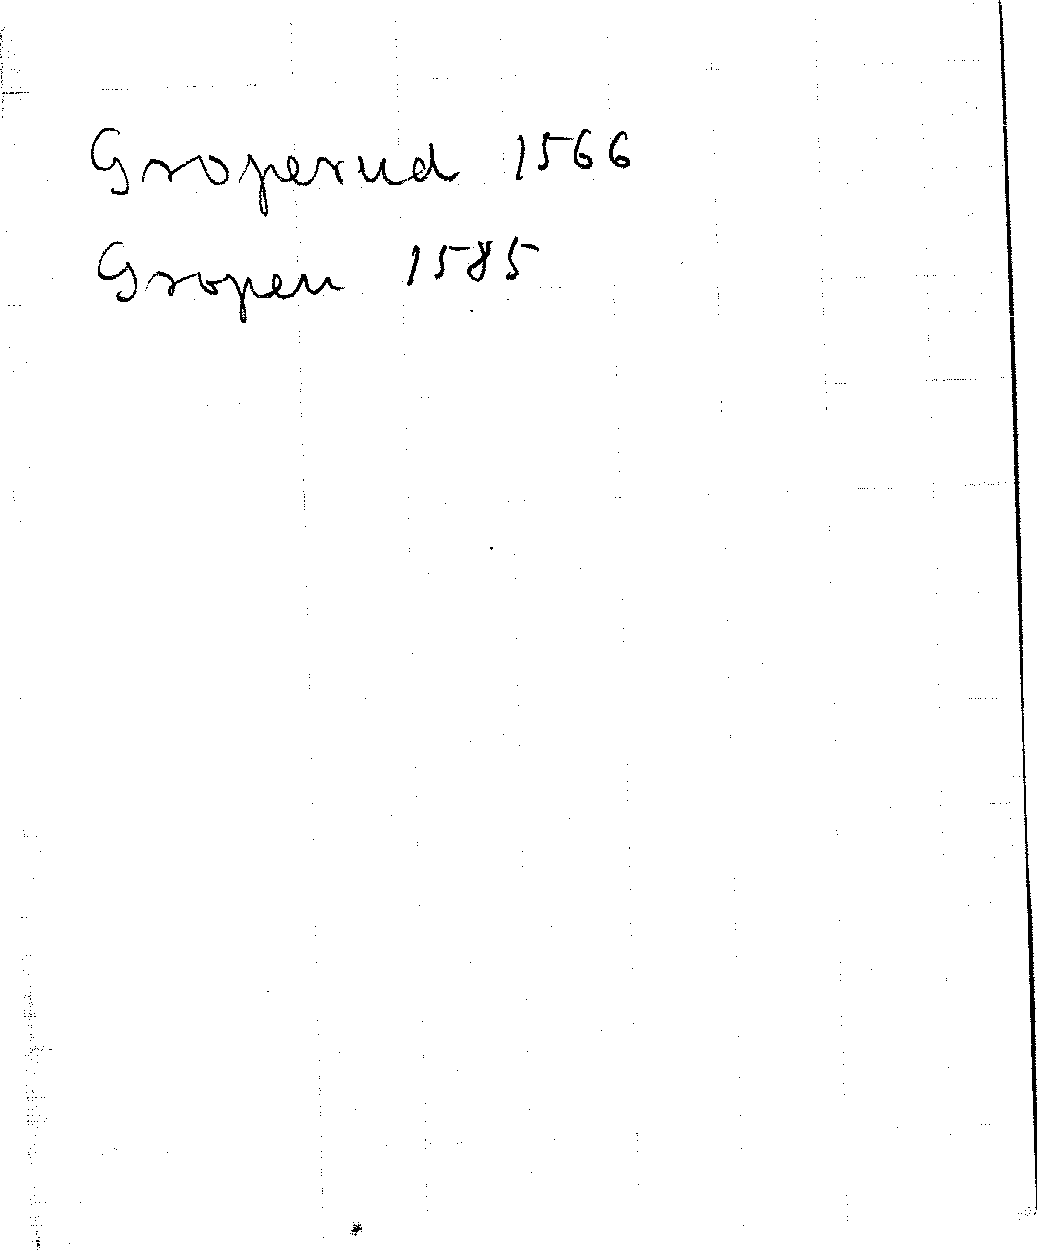 Groperud 1566
Gropen 1585